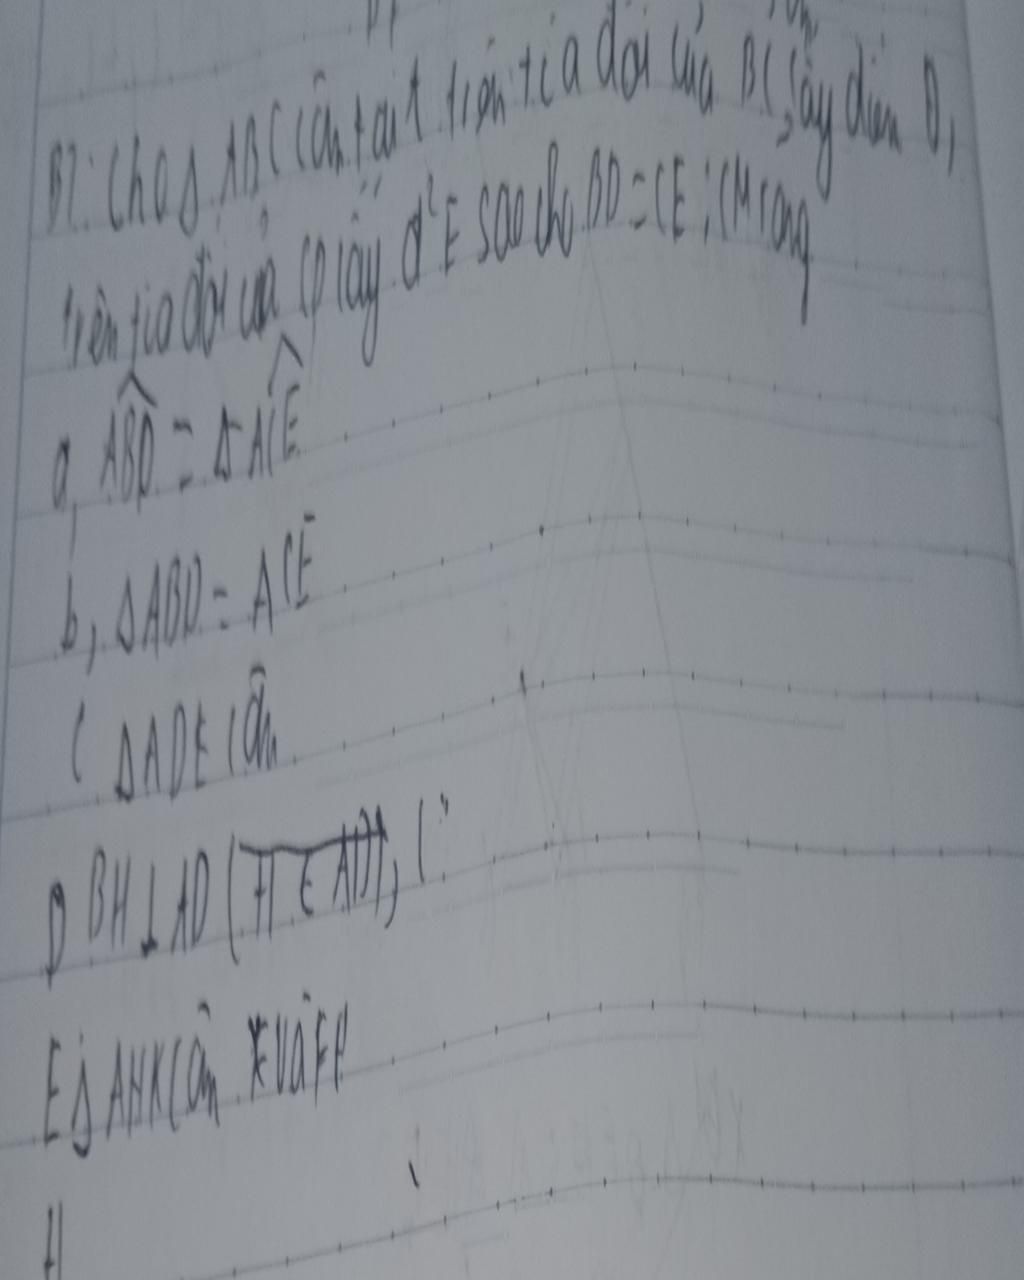 B7: Cho Δ ABC cân tại A trên tia đối của BC, lấy điểm D,
trên tia đối của CB lấy đ² E sao cho BD = CE; CM rằng
a, ABD = Δ ACE
b, Δ ABD = ACE
C Δ ADE cân
D BH ⊥ AD (H ∈ AD), C
E Δ AHK cân
H